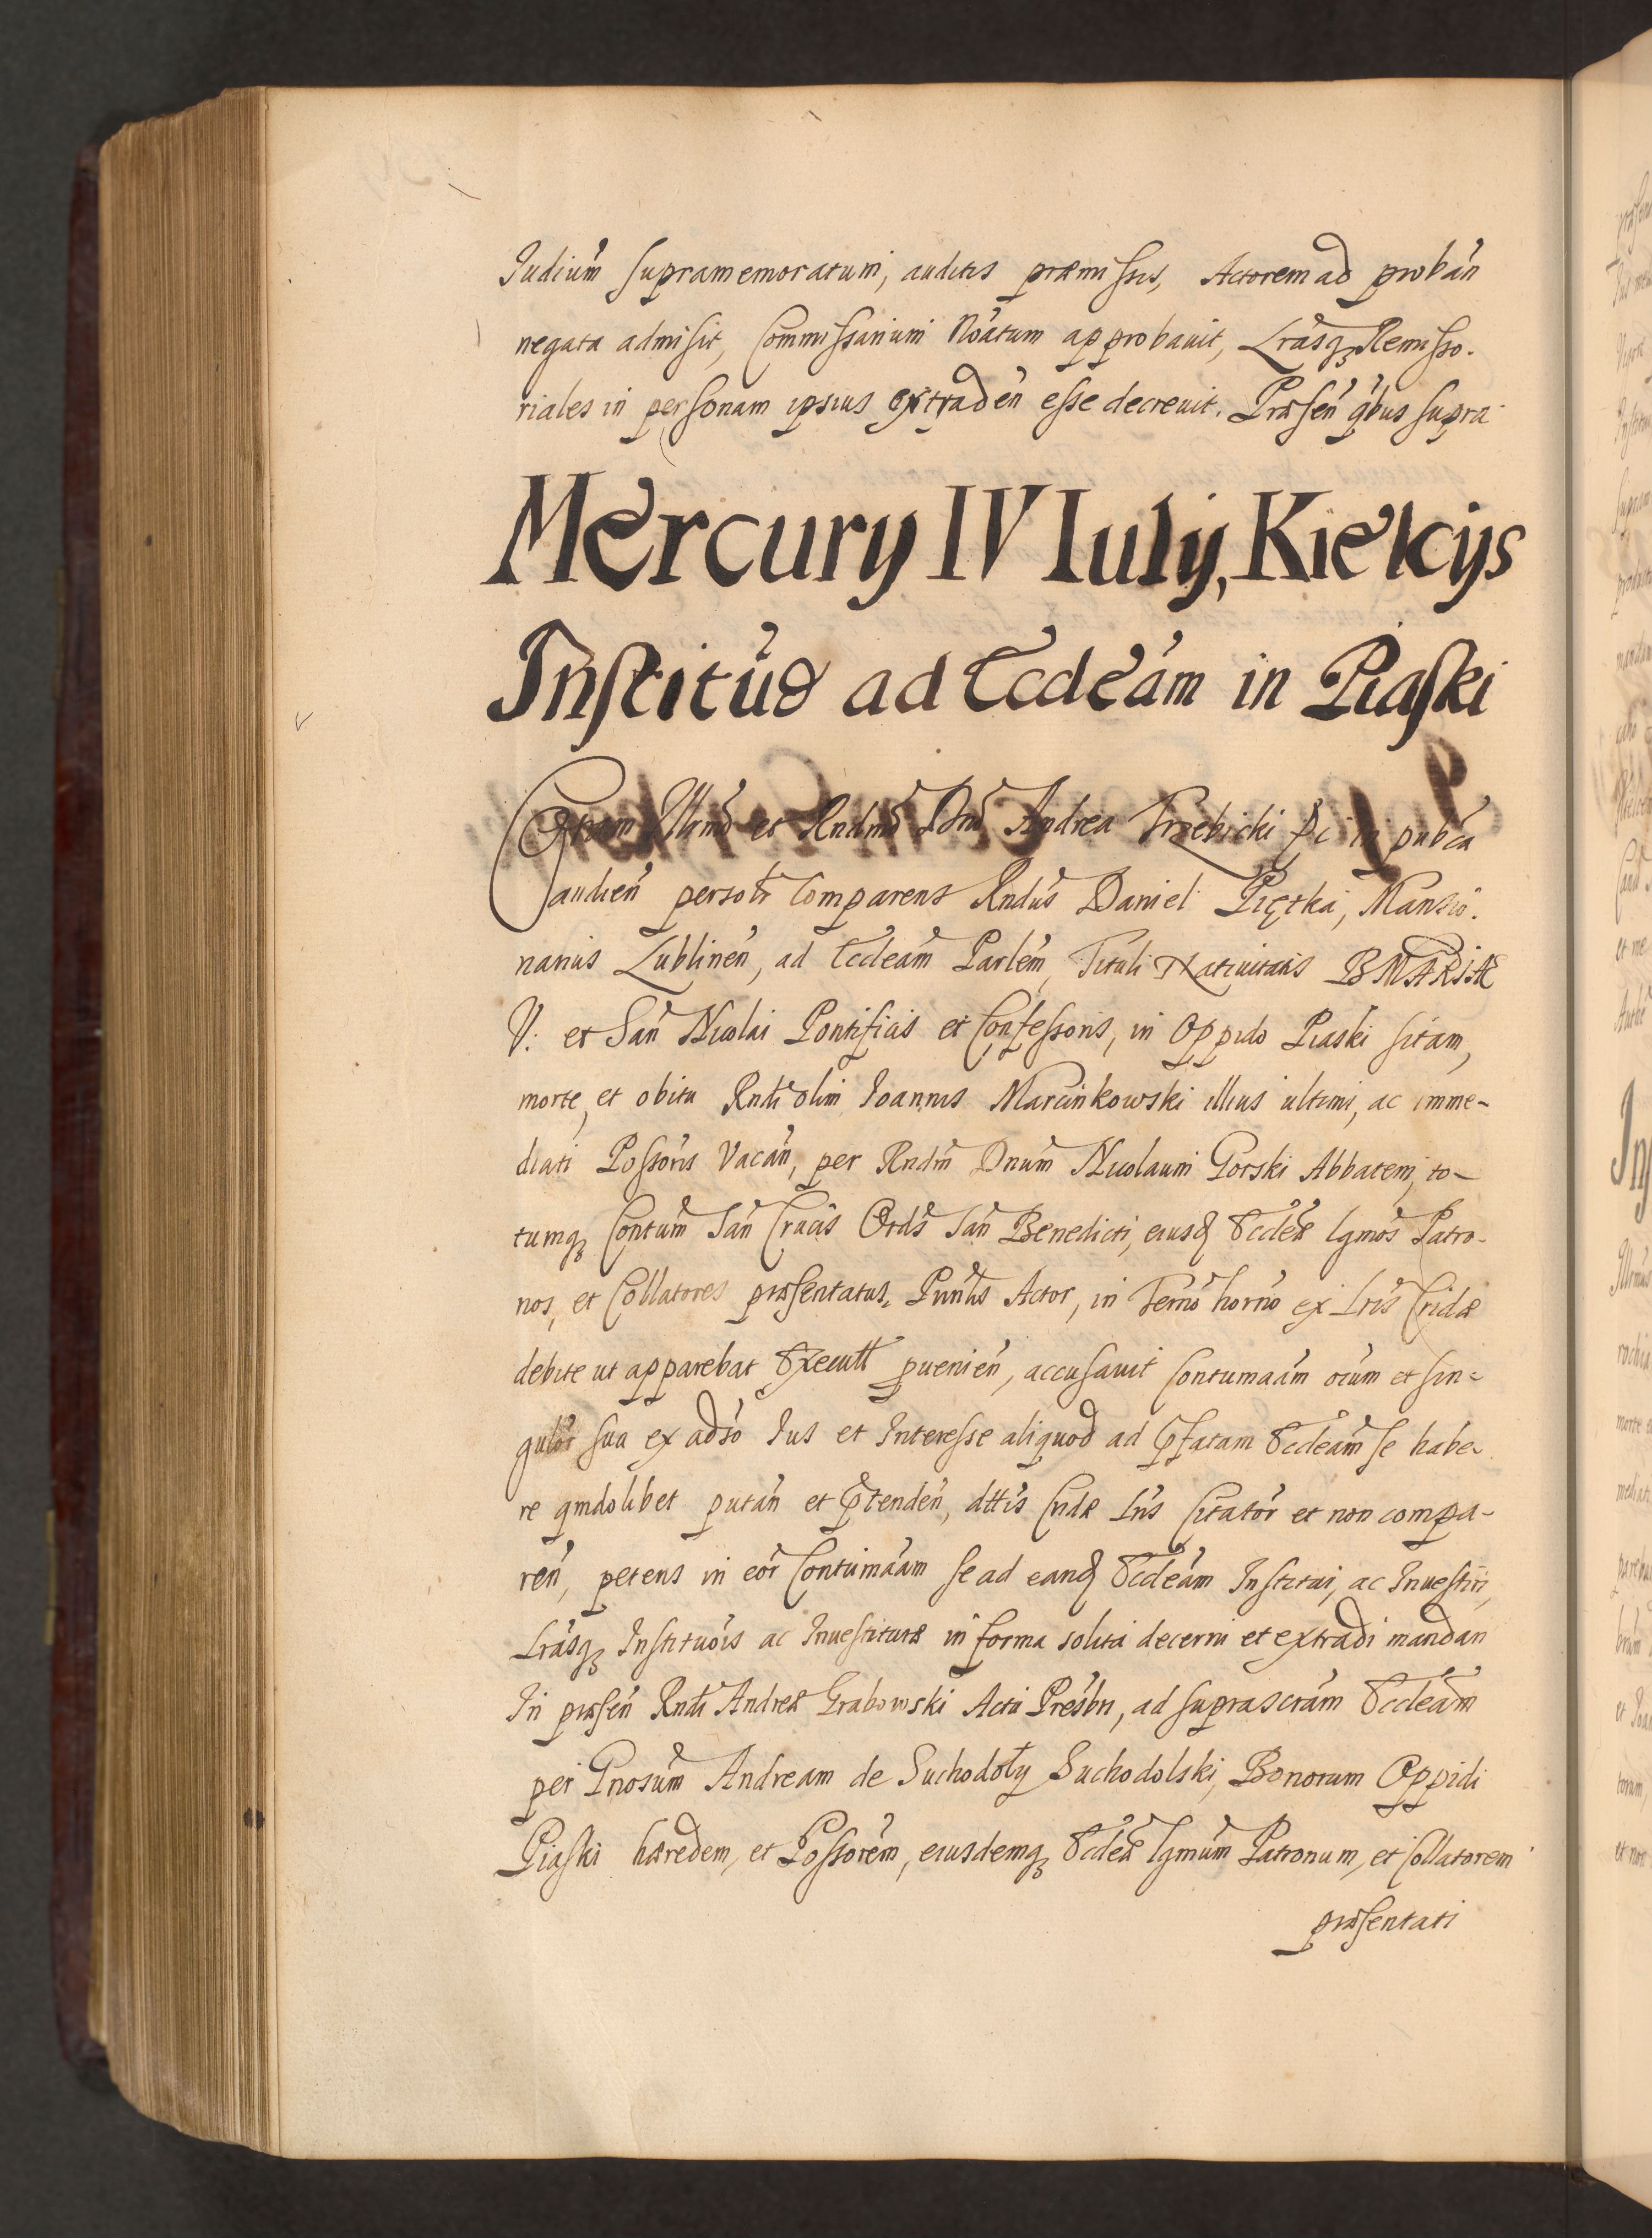 Judiúm supramemoratum, auditis præmissis, Actorem ad probań
negata admisit, Commissarium Nóatum approbauit, Lrásqꝫ Remisso-
riales in personam ipsius extradeń esse decreuit. Præseń qbus supra
Mercury IV Iulij, Kielcijs
Institúõ ad Eccleám in Piaski
Coram Illmõ et Rndmõ Dnõ Andrea Trzebicki Ep̃o in pubca
audień persolr̃ Comparens Rndús Daniel Piętka, Mansio-
narius Lublineń, ad Eccleám Parlém, Tituli Natiuitatis B MARIÆ
V: et Sań Nicolai Pontificis et Confessoris, in Oppido Piaski sitam,
morte, et obitu Rndi olim Ioannis Marcinkowski illius ultimi, ac imme-
diati Possoris Vacań, per Rndm̃ Dnum̃ Nicolaum Gorski Abbatem, to-
tumqꝫ Contum̃ Sań Crucis Ords̃ Sań Benedicti, eiusđ Eccleæ lgmos̃ Patro-
nos, et Collatores præsentatus, Pnńlis Actor, in Termo horno ex Lris Cridæ
debite ut apparebat Executt ꝓuenień, accusauit Contumaám oium et sin-
gulór sua ex adsó Ius et Interesse aliquod ad ꝓfatam Eccleám se habe-
re qmdolibet putań et ꝓtendeń, dttis Cridæ Lris Citatór et non compa-
reń, petens in eór Contumaám se ad eanđ Eccleám Institui, ac Inuestiri,
Lrásqꝫ Institutóis ac Inuestituræ in forma solita decerni et extradi mandari
In præseń Rndi Andreæ Grabowski Acti Presbri, ad suprascrám Eccleám
per Gnosum̃ Andream de Suchodoły Suchodolski, Bonorum Oppidi
Piaski hæredem, et Possorém, eiusdemqꝫ Eccleæ lgmum̃ Patronum, et Collatorem
præsentati